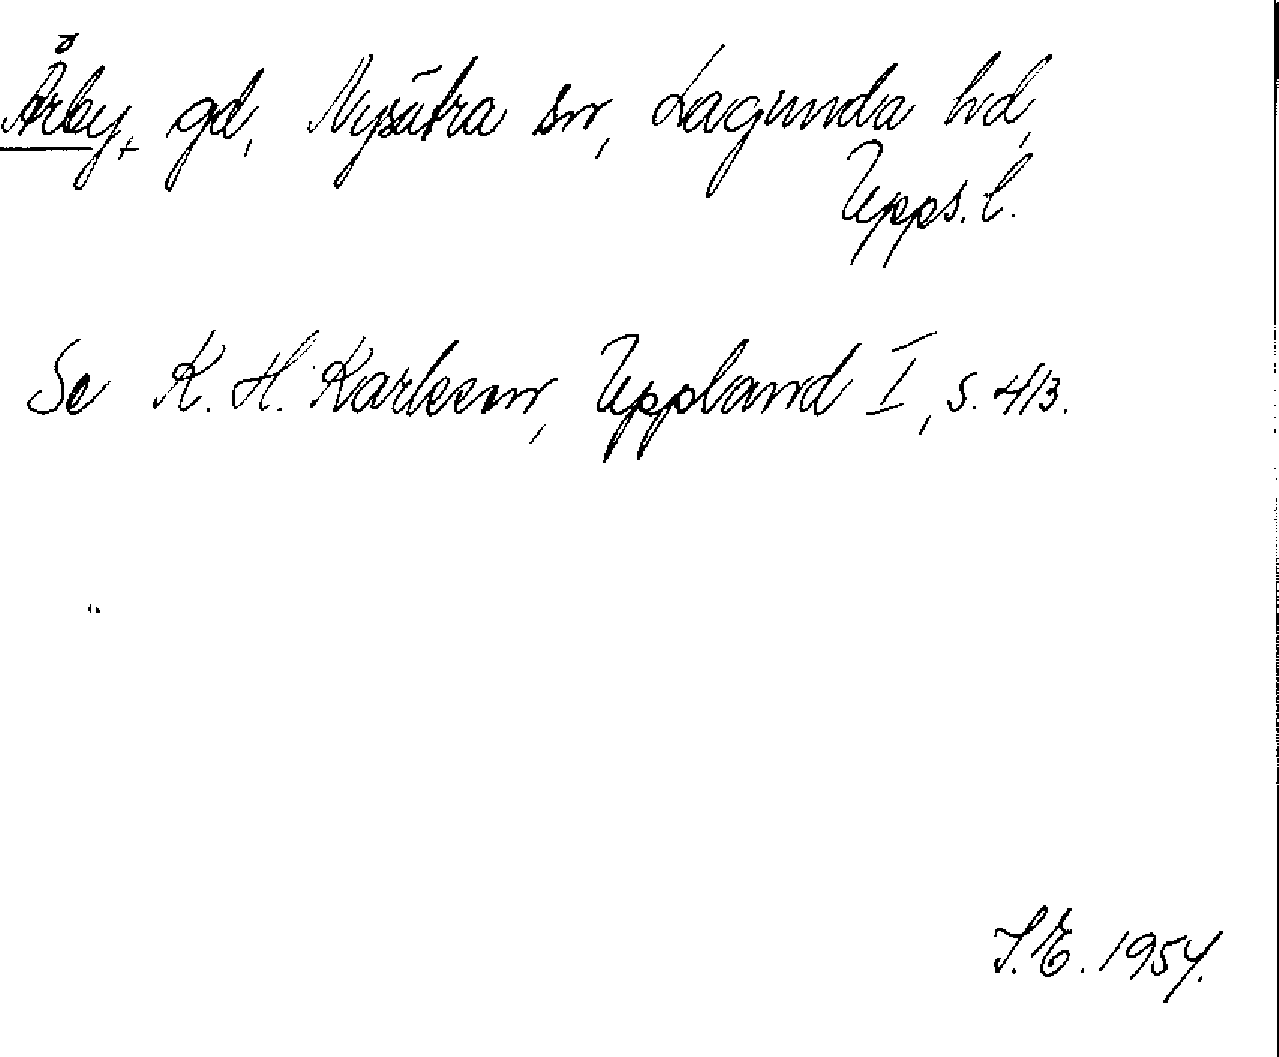 Årby, gd, Nysätra sn, Lagunda hd,
Upps. l.
Se K. H. Karlsson, Uppland I, s. 413.
S.E. 1954.